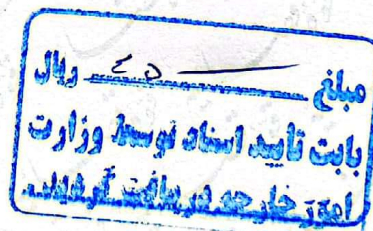 مبلغ ٤٥ — ریال
بابت تایید اسناد توسط وزارت
امور خارجه دریافت گردید.